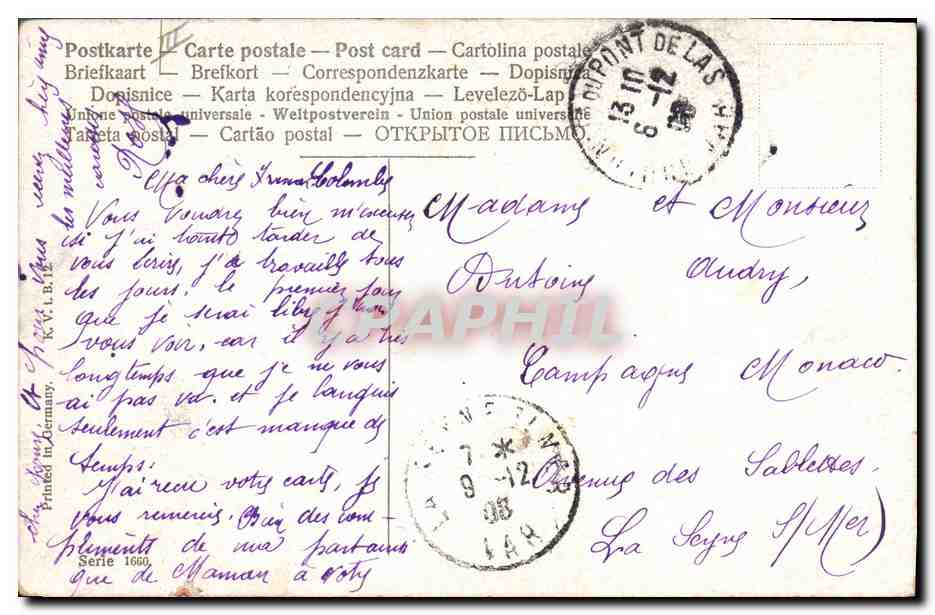 Postkarte — Carte postale — Post card — Cartolina postale
Briefkaart — Brefkort — Correspondenzkarte — Dopisnica
Dopisnice — Karta korespondencyjna — Levelező-Lap
Unione postale universale - Weltpostverein - Union postale universelle
Tarjeta postal — Cartão postal — ОТКРЫТОЕ ПИСЬМО
DU PONT DE LAS VAR
13 10
6 -12
08
Ma chère
Vous voudrez bien m'excuser
si j'ai tarder de
vous écrire, j'ai travaillé tous
les jours. le premier jour
que je serai libre j'irai
vous voir. car il y a très
longtemps que je ne vous
ai pas vu. et je languis
seulement c'est manque de
temps.
J'ai reçu votre carte, je
vous remercie. Bien des com-
pliments de ma part ainsi
que de Maman à votre
et pour vous
les meilleures
Madame et Monsieur
Antoine Audry,
Campagne Monaco
Avenue des Sablettes.
La Seyne S/Mer)
LA SEYNE
7 *
9 -12
08
VAR
Printed in Germany. K. V. i. B. 12.
Serie 1660.
CPAPHIL